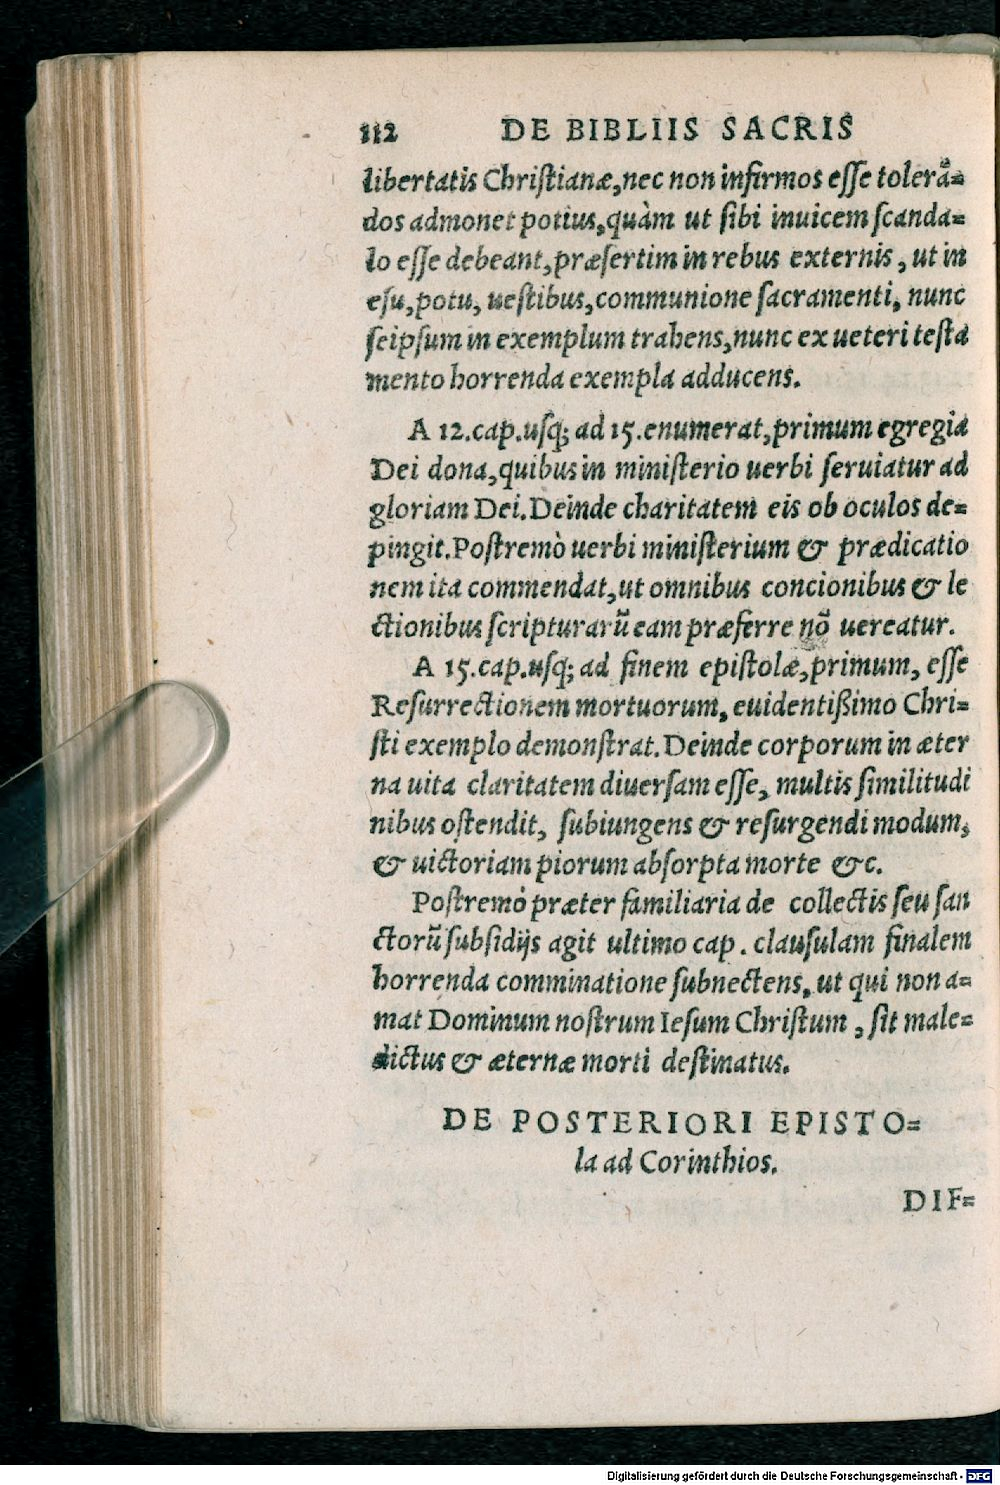 112 DE BIBLIIS SACRIS
libertatis Chriſtianæ,nec non infirmos eſſe tolerã=
dos admonet potius,quàm ut ſibi inuicem ſcanda=
lo eſſe debeant,præſertim in rebus externis, ut in
eſu,potu, ueſtibus,communione ſacramenti, nunc
ſeipſum in exemplum trahens,nunc ex ueteri teſta
mento horrenda exempla adducens.
A 12.cap.uſq; ad 15.enumerat,primum egregia
Dei dona,quibus in miniſterio uerbi ſeruiatur ad
gloriam Dei.Deinde charitatem eis ob oculos de=
pingit.Poſtremò uerbi miniſterium & prædicatio
nem ita commendat,ut omnibus concionibus & le
ctionibus ſcripturarũ eam præferre nõ uereatur.
A 15.cap.uſq; ad finem epiſtolæ,primum, eſſe
Reſurrectionem mortuorum, euidentißimo Chri=
ſti exemplo demonſtrat.Deinde corporum in æter
na uita claritatem diuerſam eſſe, multis ſimilitudi
nibus oſtendit, ſubiungens & reſurgendi modum,
& uictoriam piorum abſorpta morte &c.
Poſtremò præter familiaria de collectis ſeu ſan
ctorũ ſubſidijs agit ultimo cap. clauſulam finalem
horrenda comminatione ſubnectens, ut qui non a=
mat Dominum noſtrum Ieſum Chriſtum, ſit male=
dictus & æternæ morti deſtinatus.
DE POSTERIORI EPISTO=
la ad Corinthios.
DIF=
Digitalisierung gefördert durch die Deutsche Forschungsgemeinschaft - DFG